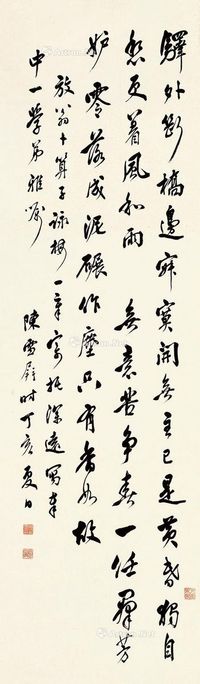 驛外斷橋邊寂寞開無主已是黃昏獨自
愁更著風和雨 無意苦爭春一任群芳
妒零落成泥碾作塵只有香如故
放翁卜算子詠梅一章寄托深遠寫奉
中一學弟雅囑
陳雷 時丁亥夏日